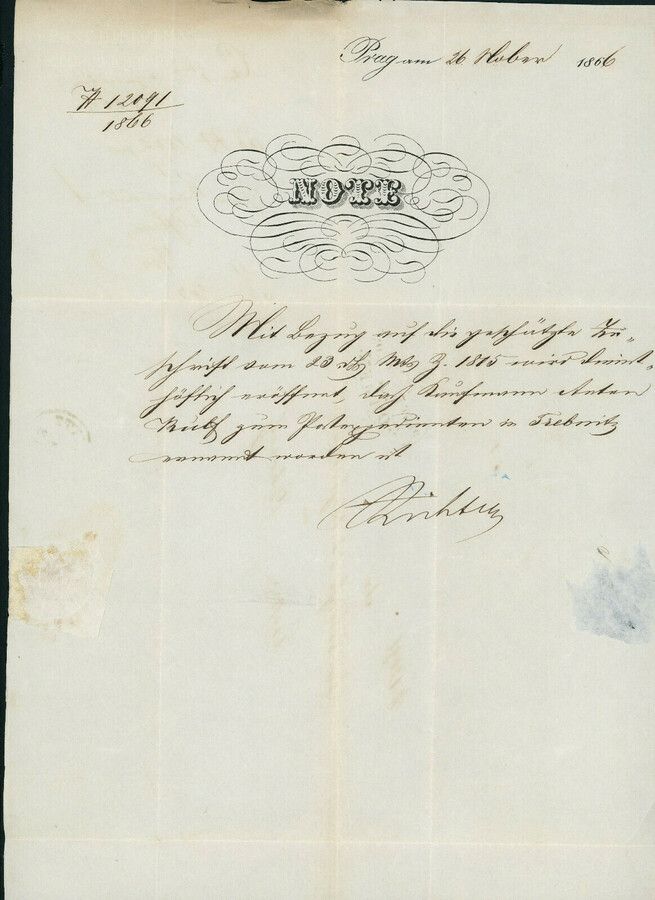 Prag am 26 Nober 1866
№ 12091
1866
NOTE
Mit Bezug auf die geschätzte Zu-
schrift vom 23 d. Mts Z. 1815 wird dienst-
höflich eröffnet, daß Kaufmann Anton
zum Postexpedienten in Trebnitz
ernannt worden ist
Richter